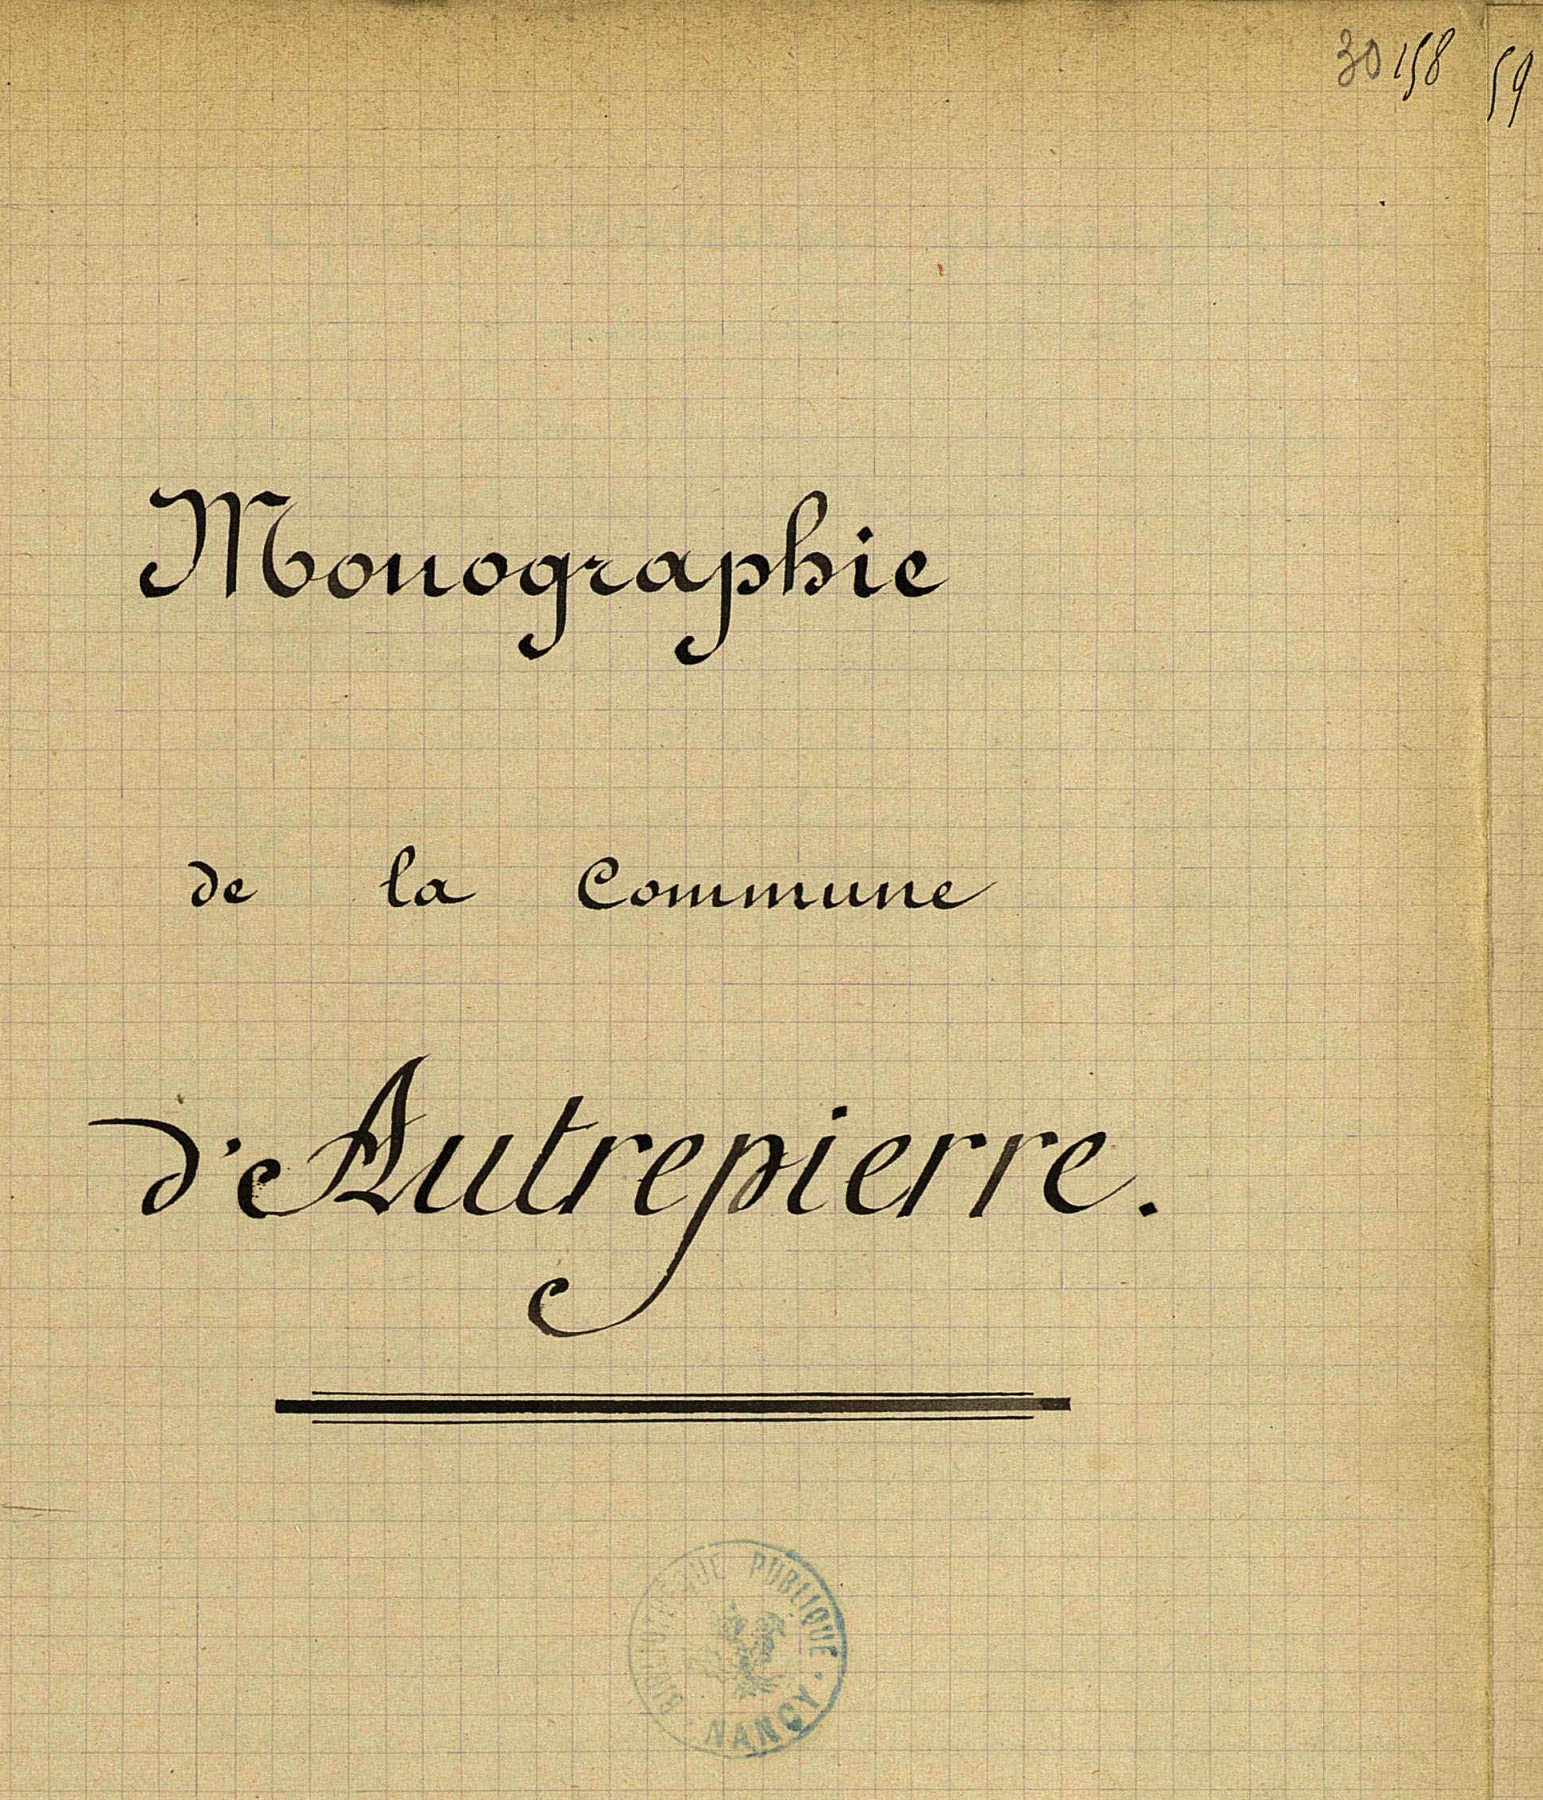 30 158 59
Monographie
de la Commune
d'Autrepierre.
BIBLIOTHEQUE PUBLIQUE
NANCY